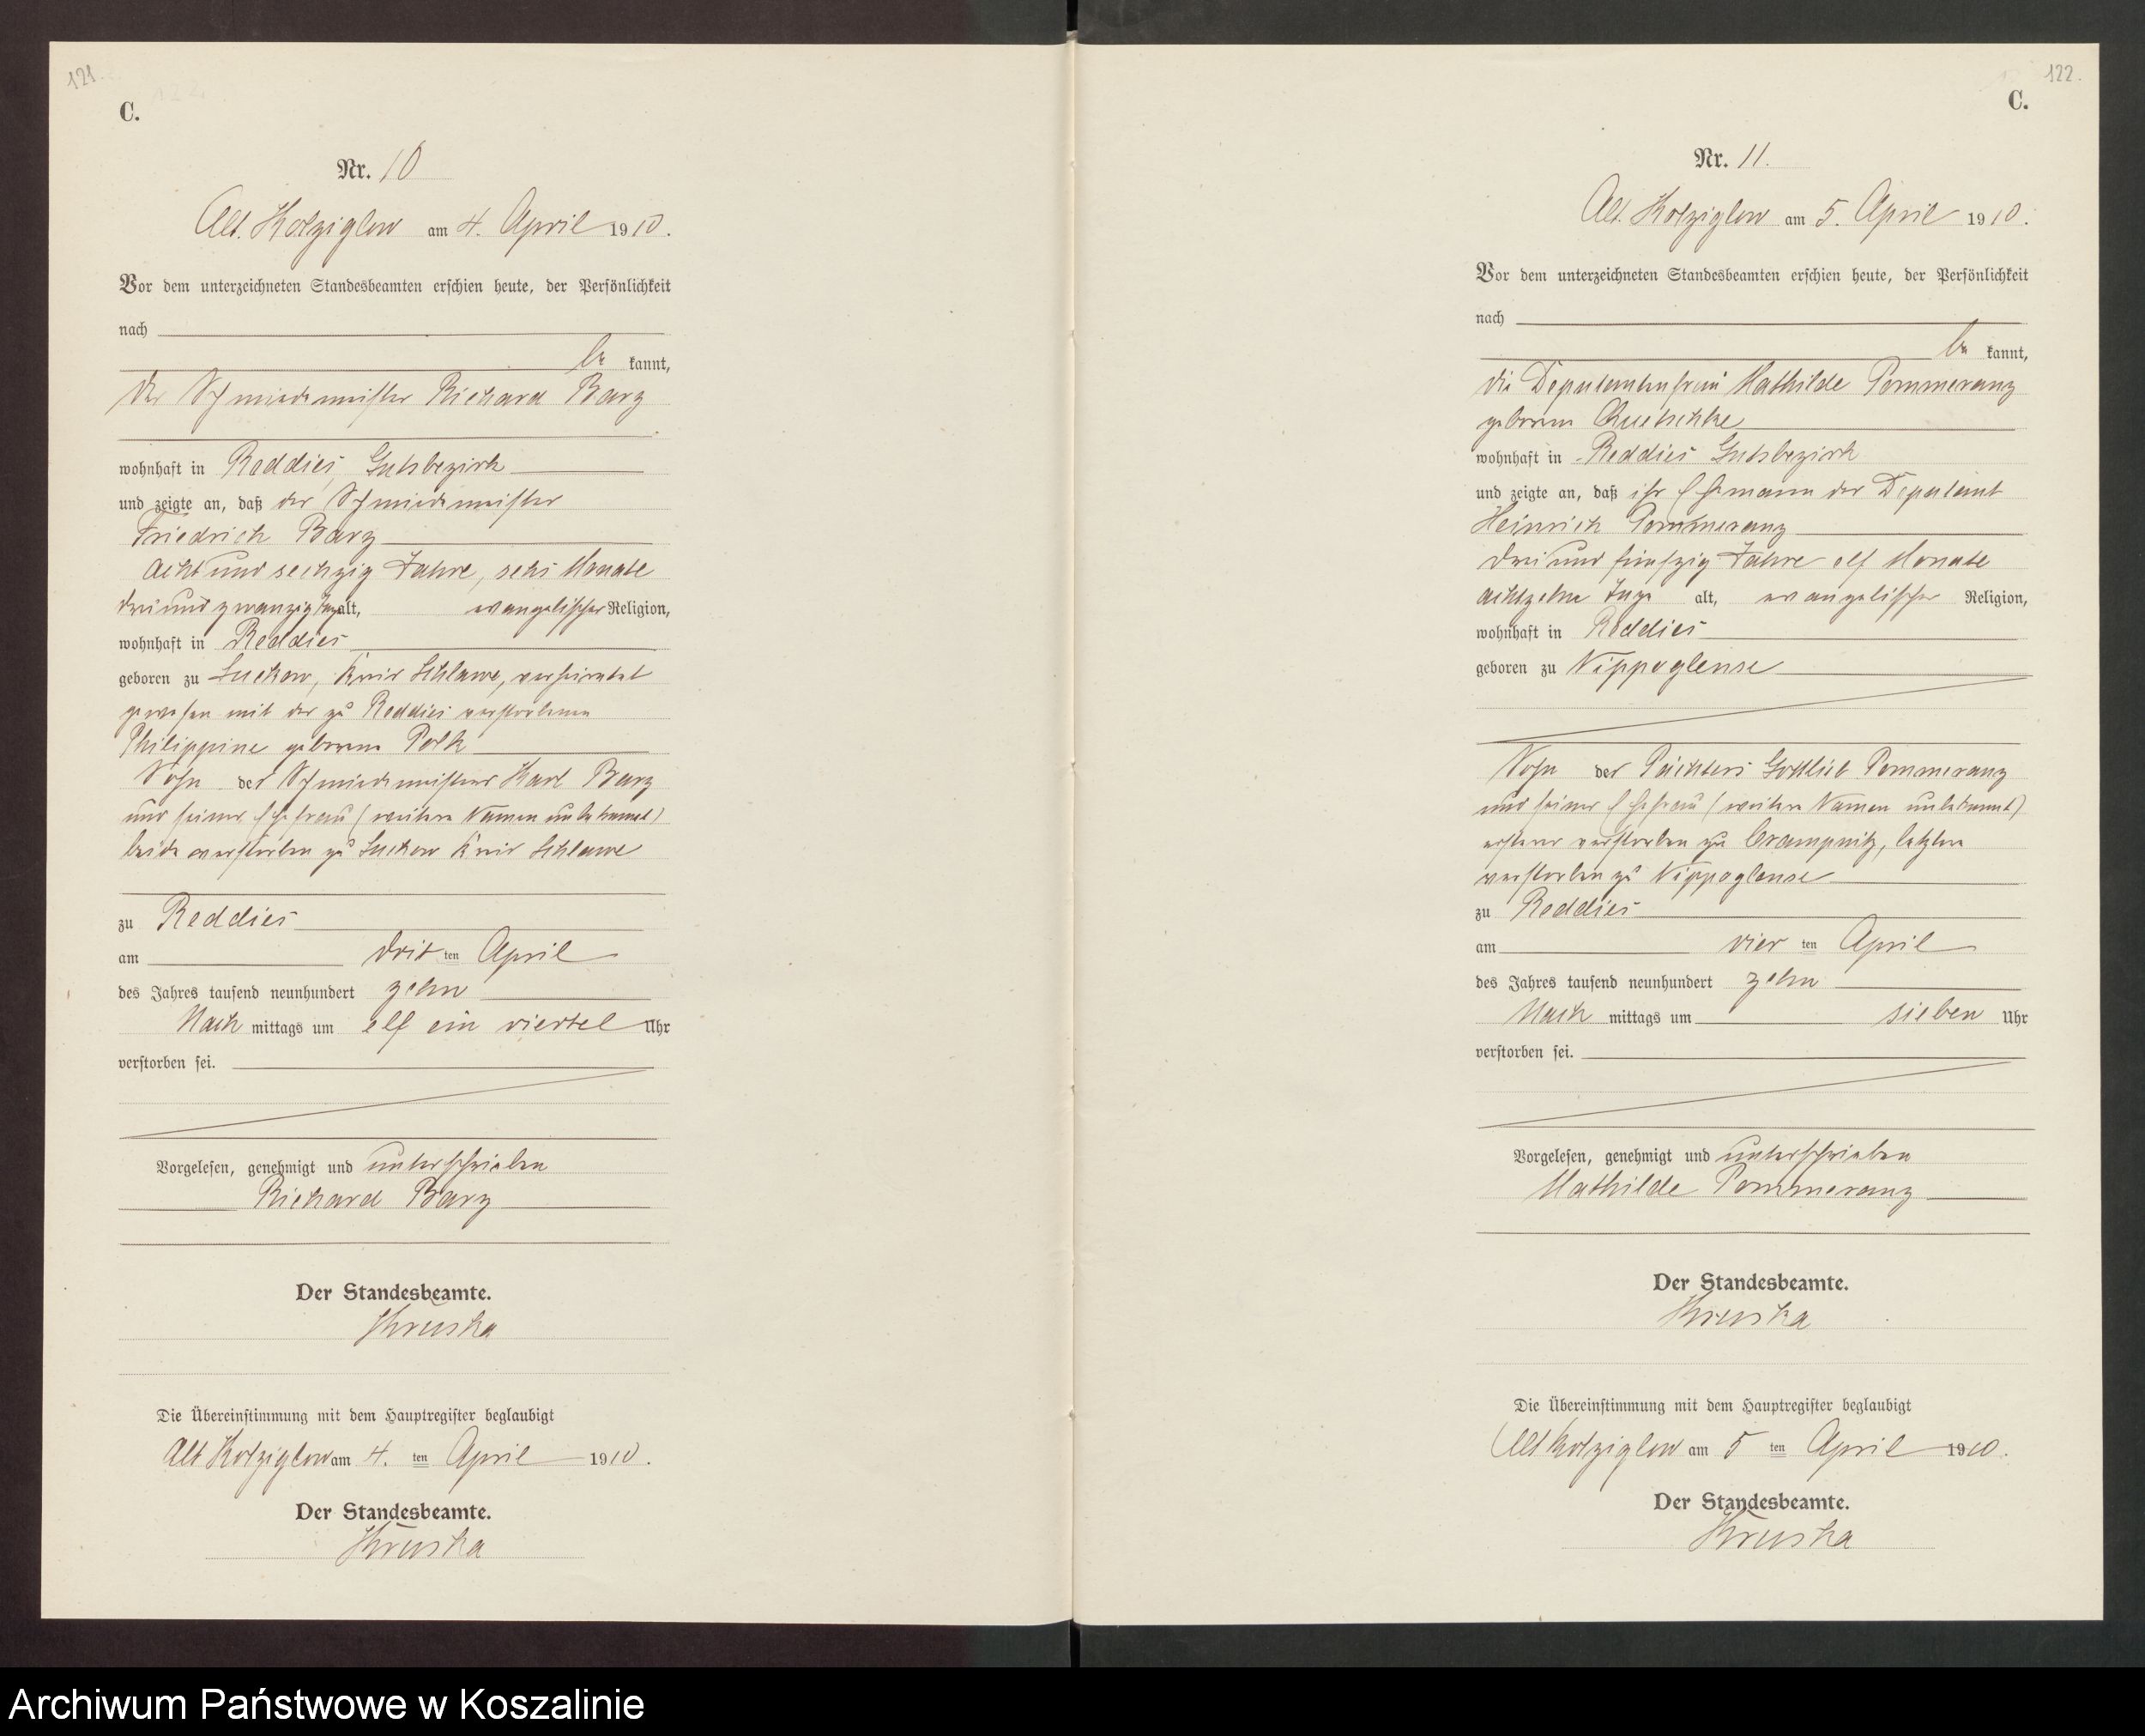 121.
C.
Nr. 10
Alt. Kolziglow am 4. April 1910.
Vor dem unterzeichneten Standesbeamten erschien heute, der Persönlichkeit
nach
be kannt,
der Schmiedemeister Richard Barz
wohnhaft in Reddies, Gutsbezirk
und zeigte an, daß der Schmiedemeister
Friedrich Barz
acht und sechzig Jahre, sechs Monate
drei und zwanzig Tage alt, evangelischer Religion,
wohnhaft in Reddies
geboren zu Suckow, Kreis Schlawe, verheiratet
gewesen mit der zu Reddies verstorbenen
Philippine geborene Polk
Sohn des Schmiedemeisters Karl Barz
und seiner Ehefrau (weitere Namen unbekannt)
beide verstorben zu Suckow Kreis Schlawe
zu Reddies
am drit ten April
des Jahres tausend neunhundert zehn
Nach mittags um elf ein viertel Uhr
verstorben sei.
Vorgelesen, genehmigt und unterschrieben
Richard Barz
Der Standesbeamte.
Kruska
Die Übereinstimmung mit dem Hauptregister beglaubigt
Alt Kolziglow am 4. ten April 1910.
Der Standesbeamte.
Kruska
122.
C.
Nr. 11.
Alt. Kolziglow am 5. April 1910.
Vor dem unterzeichneten Standesbeamten erschien heute, der Persönlichkeit
nach
be kannt,
die Deputantenfrau Mathilde Pommeranz
geborene
wohnhaft in Reddies Gutsbezirk
und zeigte an, daß ihr Ehemann der Deputant
Heinrich Pommeranz
drei und fünfzig Jahre elf Monate
achtzehn Tage alt, evangelischer Religion,
wohnhaft in Reddies
geboren zu Nippoglense
Sohn des Pächters Gottlieb Pommeranz
und seiner Ehefrau (weitere Namen unbekannt)
ersterer verstorben zu Crampnitz, letztere
verstorben zu Nippoglense
zu Reddies
am vier ten April
des Jahres tausend neunhundert zehn
Nach mittags um sieben Uhr
verstorben sei.
Vorgelesen, genehmigt und unterschrieben
Mathilde Pommeranz
Der Standesbeamte.
Kruska
Die Übereinstimmung mit dem Hauptregister beglaubigt
Alt Kolziglow am 5 ten April 1910.
Der Standesbeamte.
Kruska
Archiwum Państwowe w Koszalinie